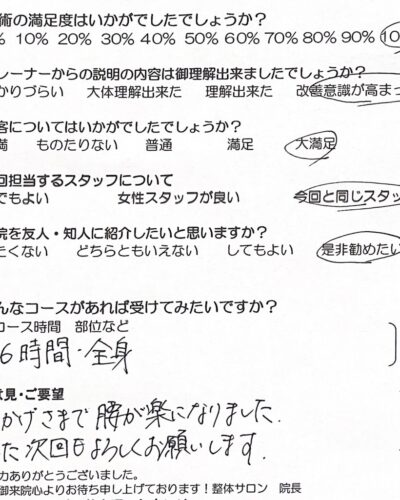 術の満足度はいかがでしたでしょうか？
% 10% 20% 30% 40% 50% 60% 70% 80% 90% 10
レーナーからの説明の内容は御理解出来ましたでしょうか？
かりづらい 大体理解出来た 理解出来た 改善意識が高まっ
客についてはいかがでしたでしょうか？
満 ものたりない 普通 満足 大満足
回担当するスタッフについて
でもよい 女性スタッフが良い 今回と同じスタッ
院を友人・知人に紹介したいと思いますか？
たくない どちらともいえない してもよい 是非勧めたい
んなコースがあれば受けてみたいですか？
コース時間 部位など
6時間・全身
意見・ご要望
かげさまで腰が楽になりました.
た次回もよろしくお願いします.
力ありがとうございました。
御来院心よりお待ち申し上げております！整体サロン 院長